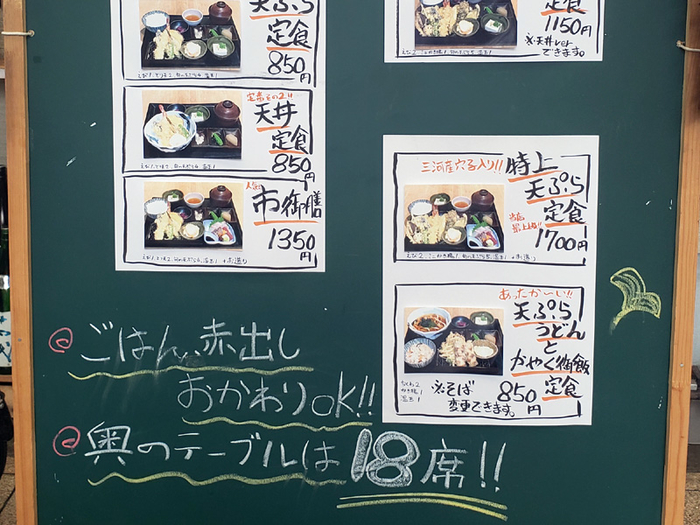 天ぷら
定食
850円
定番その2!!
天丼
定食
850円
人気
市御膳
1350円
定食
1150円
※天丼ver
できます。
三河産穴子入り!!
特上
天ぷら
定食
当店
最上級!!
1700円
あったか〜い!!
天ぷら
うどん
と
かやく御飯
定食
850円
※そば
変更できます。
ごはん、赤出し
おかわりok!!
奥のテーブルは18席!!